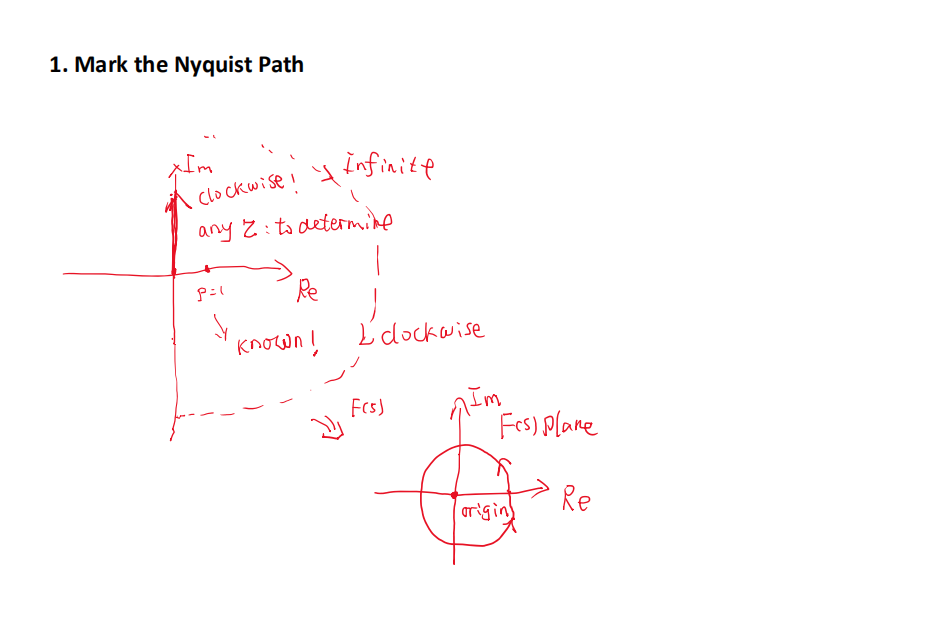 1. Mark the Nyquist Path
Im
Infinite
clockwise!
any Z: to determine
P=1
Re
Known!
clockwise
F(s)
Im
F(s) Plane
Re
origin